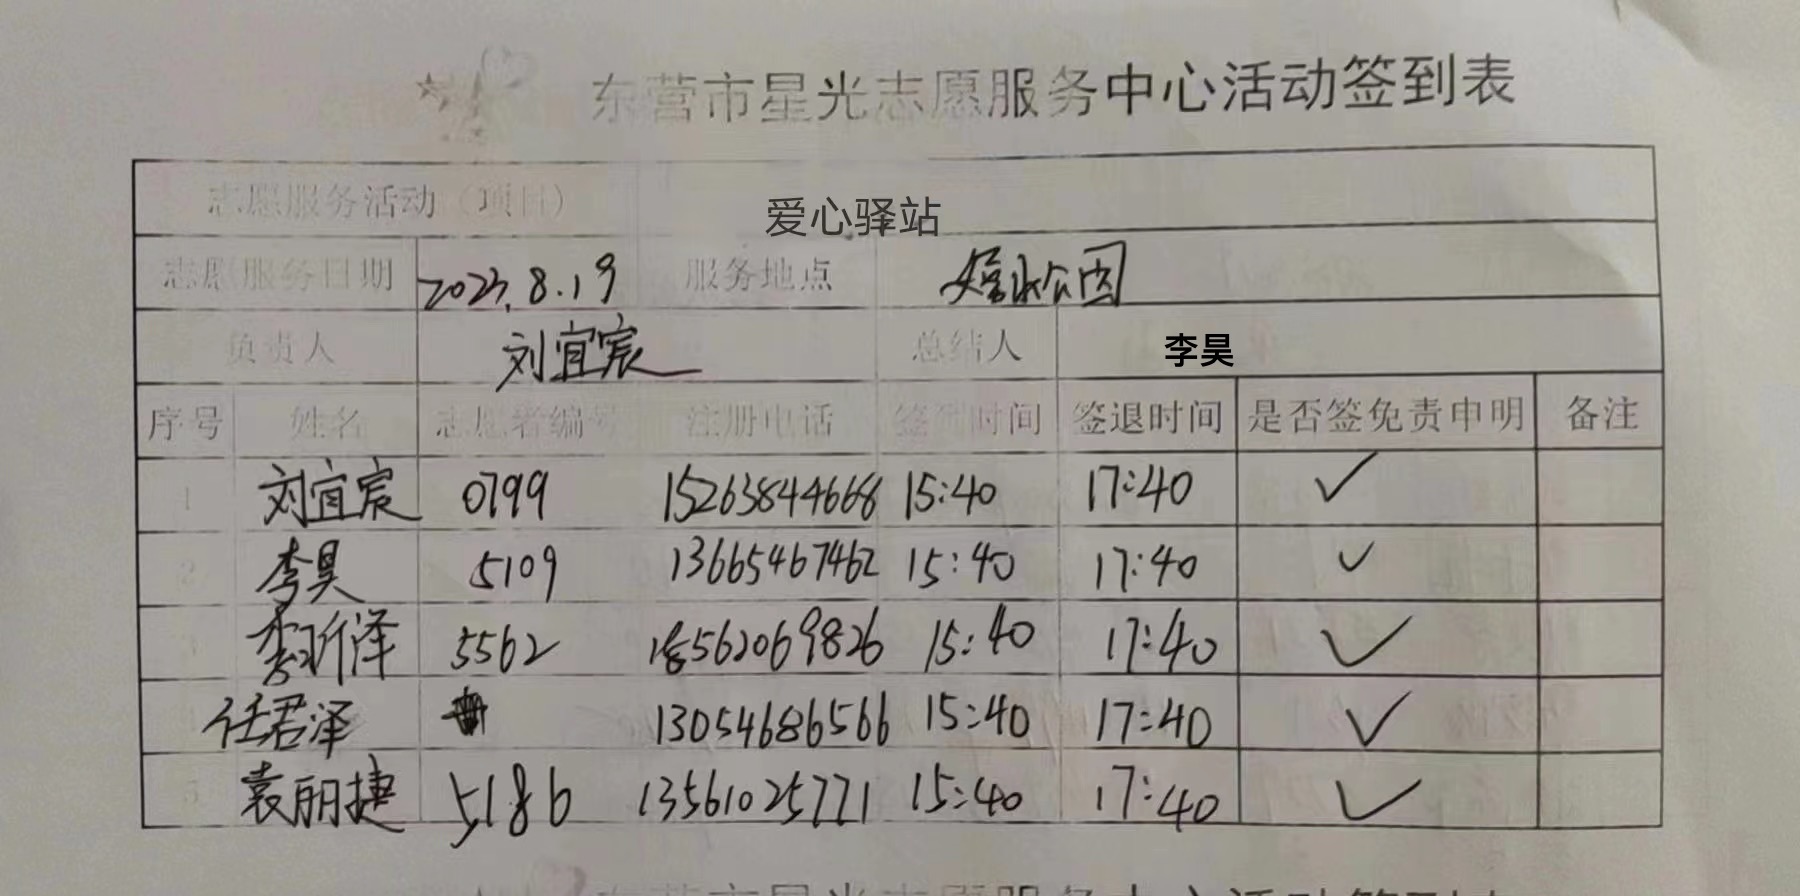 东营市星光志愿服务中心活动签到表
志愿服务活动（项目） 爱心驿站
志愿服务日期 2023.8.19 服务地点 公园
负责人 刘宜宸 总结人 李昊
序号 姓名 志愿者编号 注册电话 签到时间 签退时间 是否签免责申明 备注
1 刘宜宸 0799 15263844668 15:40 17:40 ✓
2 李昊 5109 13665467462 15:40 17:40 ✓
李玠泽 5562 18562069826 15:40 17:40 ✓
任君泽 13054686566 15:40 17:40 ✓
5 袁丽捷 5186 13561025771 15:40 17:40 ✓
东营市星光志愿服务中心活动签到表